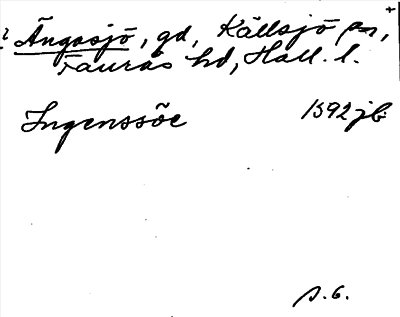 ? Ängasjö, gd, Källsjö sn, +
Faurås hd, Hall. l.
Ingenssöe 1592 jb
s. 6.